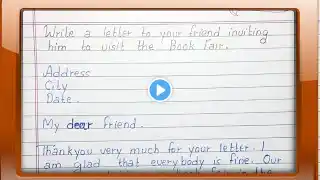 Write a letter to your friend inviting
him to visit the Book Fair.
Address
City
Date.
My dear friend.
Thankyou very much for your letter. I
am glad that everybody is fine. Our